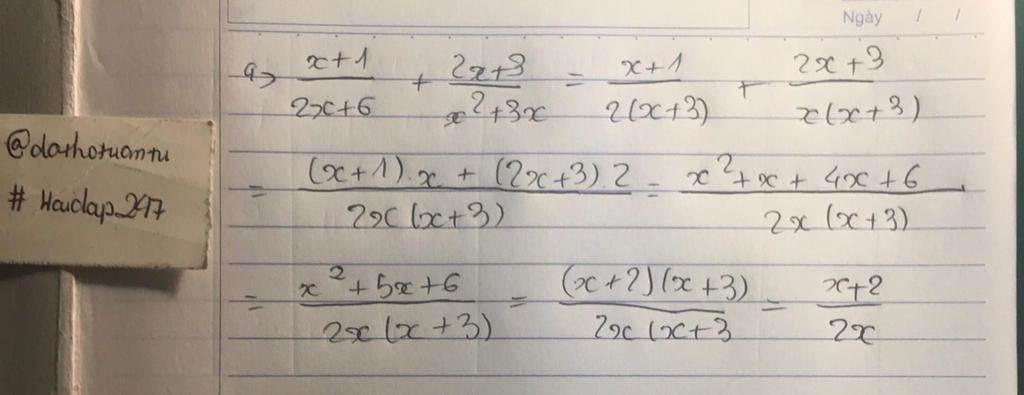 Ngày / /
a> \frac{x+1}{2x+6} + \frac{2x+3}{x^2+3x} = \frac{x+1}{2(x+3)} + \frac{2x+3}{x(x+3)}
= \frac{(x+1).x + (2x+3).2}{2x(x+3)} = \frac{x^2+x+4x+6}{2x(x+3)}
= \frac{x^2+5x+6}{2x(x+3)} = \frac{(x+2)(x+3)}{2x(x+3} = \frac{x+2}{2x}
@dathotuantu
# Hoidap_247